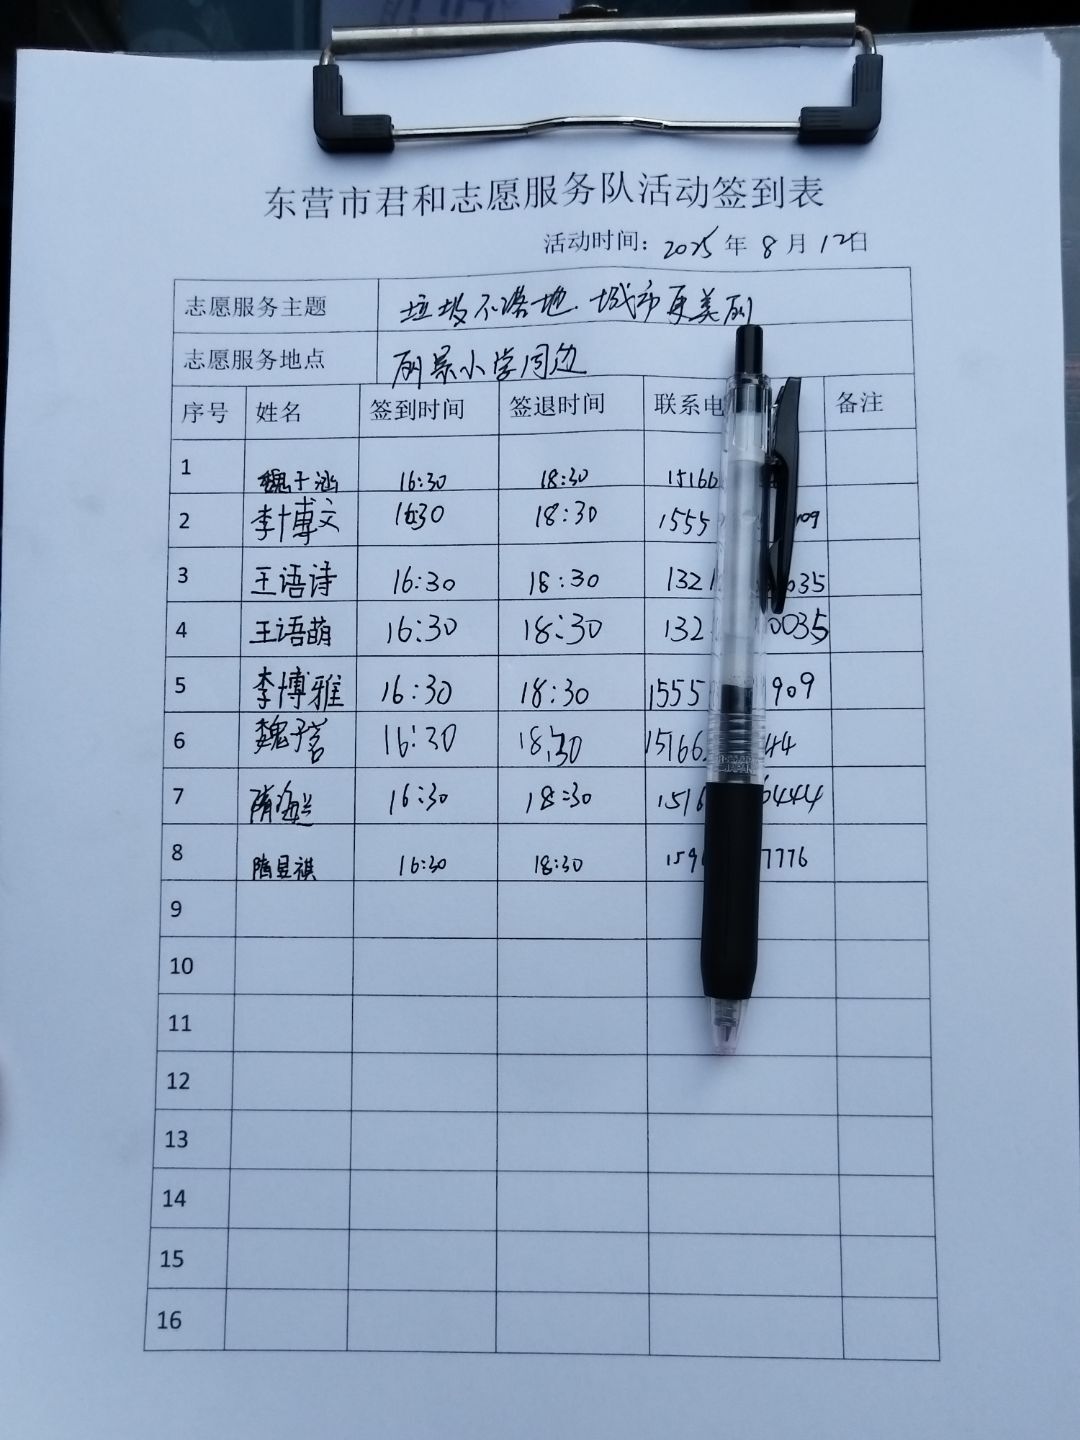 东营市君和志愿服务队活动签到表
活动时间：2025年8月12日
志愿服务主题 垃圾不落地.城市更美丽
志愿服务地点 丽景小学周边
序号 姓名 签到时间 签退时间 联系电 备注
1 魏子涵 16:30 18:30 15166
2 李博文 16:30 18:30 1555 909
3 王语诗 16:30 18:30 132 0035
4 王语萌 16:30 18:30 132 0035
5 李博雅 16:30 18:30 1555 909
6 魏子茗 16:30 18:30 15166 44
7 隋海兰 16:30 18:30 1516 6444
8 隋昱祺 16:30 18:30 159 7776
9
10
11
12
13
14
15
16